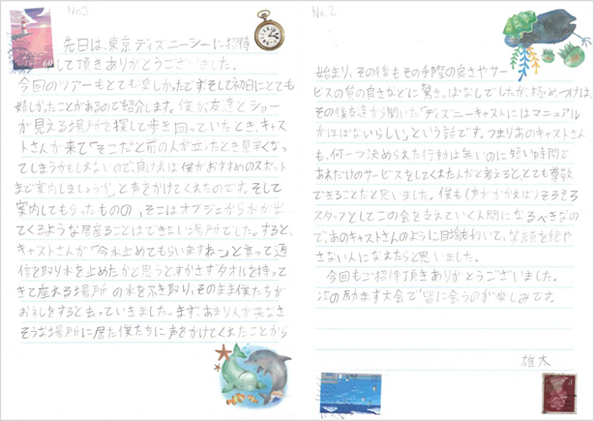 No.1
先日は、東京ディズニーシーに招待
して頂きありがとうございました。
今回のツアーもとても楽しかったですそして初日にとても
嬉しかったことがあるので紹介します。僕が友達とショー
が見える場所を探して歩き回っていたとき、キャス
トさんが来て「そこだと前の人が立ったとき見辛くなっ
てしまうかもしれないので、良ければ僕がおすすめのスポット
まで案内しましょうか」と声をかけてくれたのです。そして
案内してもらったものの、そこはオブジェから水が出
てくるような居座ることはできない場所でした。すると、
キャストさんが「今水止めてもらいますね」と言って通
信を取り水を止めたかと思うとすかさずタオルを持って
きて座れる場所の水をふき取り、そのまま僕たちが
お礼をすると去っていきました。まず、あまり人が来なさ
そうな場所に居た僕たちに声をかけてくれたことから
No.2
始まり、その後もその手際の良さやサー
ビスの質の良さなどに驚きっぱなしでしたが、極めつけは、
その後友達から聞いた「ディズニーキャストにはマニュアル
がほぼないらしい」という話です。つまりあのキャストさん
も、何一つ決められた行動は無いのに短い時間で
あれだけのサービスをしてくれたんだと考えるととても尊敬
できることだと思いました。僕も(声がかかれば)そろそろ
スタッフとしてこの会を支えていく人間になるべきなの
で、あのキャストさんのように目端を利いて、笑顔を絶や
さない人になれたらと思いました。
今回もご招待頂きありがとうございました。
次の励ます大会で皆に会うのが楽しみです。
雄太